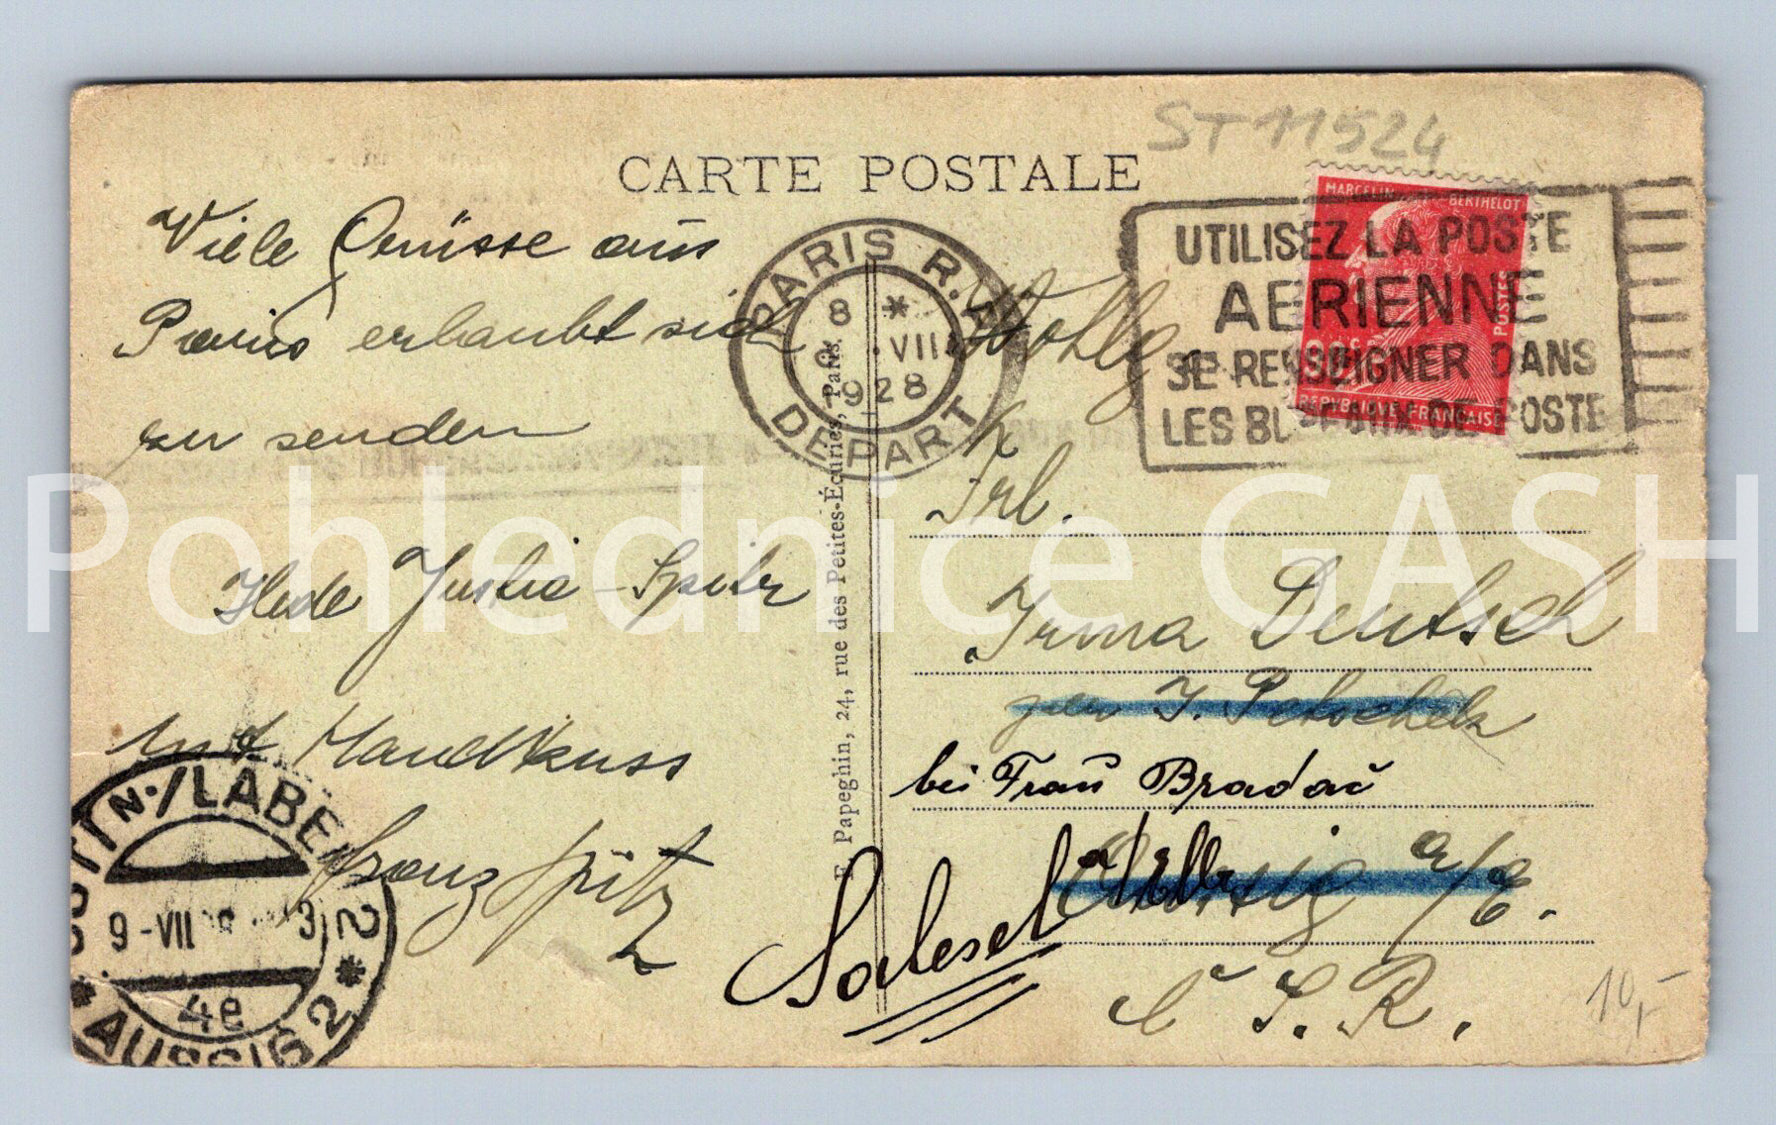 ST 11524
CARTE POSTALE
MARCELIN BERTHELOT
POSTES
90c
REPVBLIQVE FRANÇAISE
UTILISEZ LA POSTE
AERIENNE
SE RENSEIGNER DANS
LES BUREAUX DE POSTE
PARIS R.P.
8 *
8 .VIII
1928
DEPART
Viele Genüsse aus
Paris erlaubt sich
zu senden
Hede Justic-Spitz
Handkuss
Franz Spitz
E. Papeghin, 24, rue des Petites-Écuries, Paris.
Wohlg.
Frl.
Irma Deutsch
bei J. Petschek
bei Frau Bradač
Aussig a/E.
Salesel a/Elbe
Č S. R.
10,-
ÚSTÍ N./LABEM 2
9-VII 3
4e
* AUSSIG 2 *
Pohlednice GASH